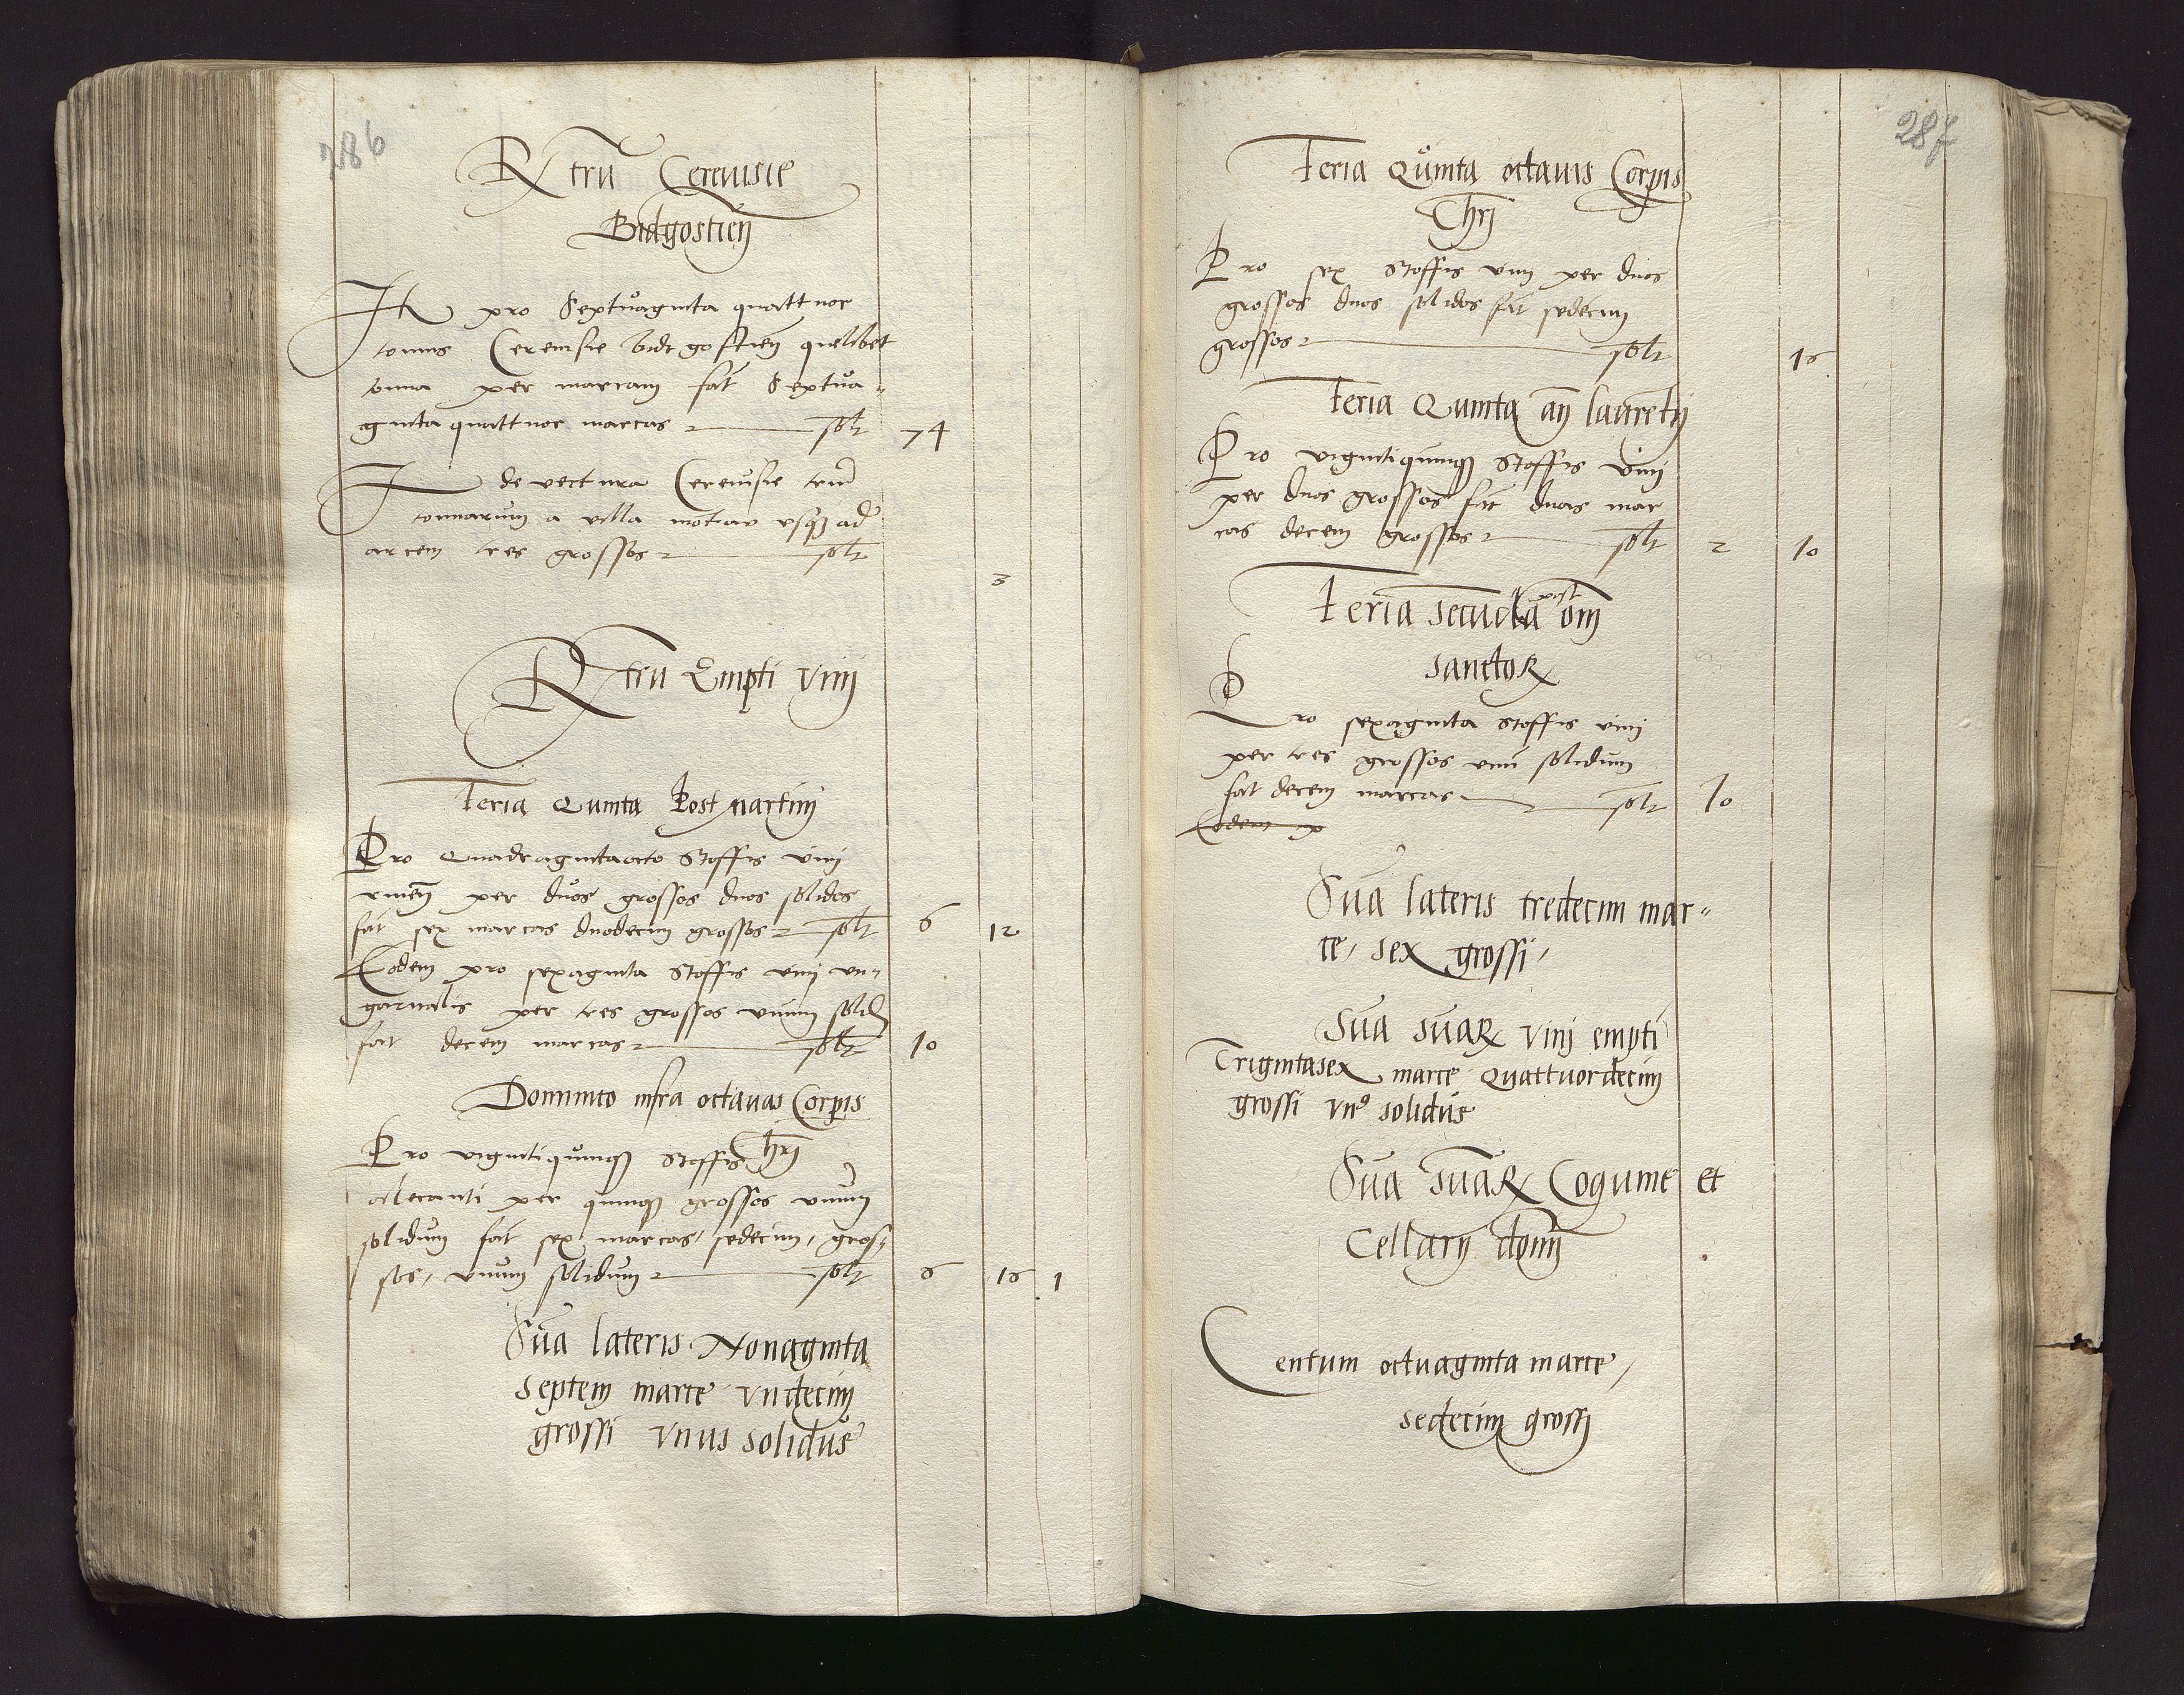 286
Rx trũ Cereuisie
Bidgostien̄
Itē pro Septuaginta quattuor
tonnis Cereuisie bidgostien̄ quelibet
tonna per marcam fat̄ Septua-
ginta quattuor marcas solt 74
It de vectura Cereuisie triũ
tonnarum a villa usqꝫ ad
arcem tres grossos solt 3
Rx trũ Empti vinj
Feria Quinta Post martinj
Pro Quadragintaocto stoffis vinj
per duos grossos duos solidos
fat̄ sex marcas duodecim grossos solt 6 12
Eodem pro sexaginta stoffis vinj vn-
garicalis per tres grossos vnum solid
fat̄ decem marcas solt 10
Dominico infra octauas Corpis
Chrj
Pro vigintiquinqꝫ stoffis
alecanti per quinqꝫ grossos vnum
solidum fat̄ sex marcas, sedecim, gros-
sos, vnum solidum solt 6 16 1
Sūa lateris Nonaginta
septem marce vndecim
grossi vnus solidus
287
Feria Quinta octauis Corpis
Chrj
Pro sex stoffis vinj per duos
grossos duos solidos fat̄ sedecim
grossos solt 16
Feria Quinta an̄ laurētij
Pro vigintiquinqꝫ stoffis vinj
per duos grossos fat̄ duas mar
cas decem grossos solt 2 10
Feria secūda post om̄
sanctoꝝ
Pro sexaginta stoffis vinj
per tres grossos vnū solidum
fat̄ decem marcas solt 10
Eodem p
Sūa lateris tredecim mar-
ce, sex grossi,
Sūa sūaꝝ vinj empti
Trigintasex marce quattuordecim
grossi vn⁹ solidus
Sūa sūaꝝ Coquine et
Cellarij domj
Centum octuaginta marce,
sedecim grossj